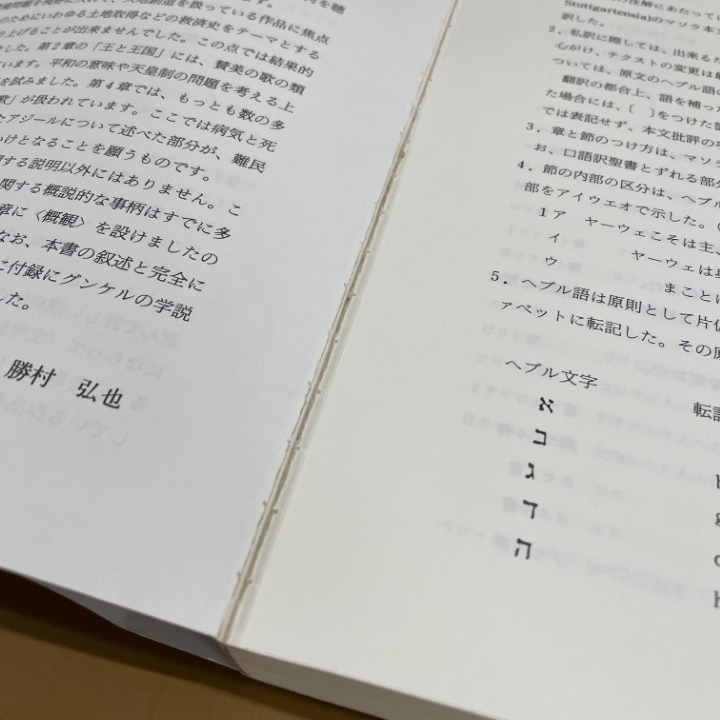 を視野に入れて、天地創造を扱っている作品に焦点
のためにいわゆる土地取得などの救済史をテーマとする
り上げることが出来ませんでした。この点では結果的
ます。
した。第2章の「王と王国」には、賛美の歌の類
います。平和の意味や天皇制の問題を考える上
を試みました。第4章では、もっとも数の多
歌」が扱われています。ここでは病気と死
たアジールについて述べた部分が、難民
いけとなることを願うものです。
関する説明以外にはありません。こ
関する概説的な事柄はすでに多
章に〈概観〉を設けましたの
なお、本書の叙述と完全に
に付録にグンケルの学説
した。
勝村 弘也
の注解にあたって
Stuttgartensia)のマソラ本文
訳した。
2．私訳に際しては、出来るだ
心がけ、テクストの変更は
ついては、原文のヘブル語の
翻訳の都合上、語を補った
た場合には、〔 〕をつけた
では表記せず、本文批評の
3．章と節のつけ方は、マソ
お、口語訳聖書とずれる部分
4．節の内部の区分は、ヘブル
部をアイウエオで示した。(
1ア ヤーウェこそは主、
イ ヤーウェは
ウ まことに
5．ヘブル語は原則として片仮
ァベットに転記した。その
ヘブル文字
転記
א
ב
ג
ד
ה